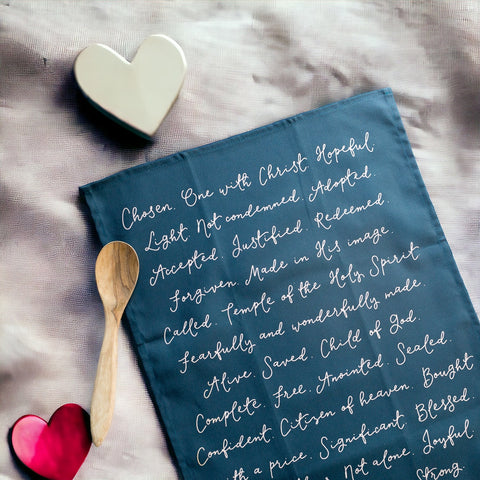 Chosen. One with Christ. Hopeful.
Light. Not condemned. Adopted.
Accepted. Justified. Redeemed.
Forgiven. Made in His image.
Called. Temple of the Holy Spirit
Fearfully and wonderfully made.
Alive. Saved. Child of God.
Complete. Free. Anointed. Sealed.
Confident. Citizen of heaven. Bought
with a price. Significant. Blessed.
Not alone. Joyful
Strong.